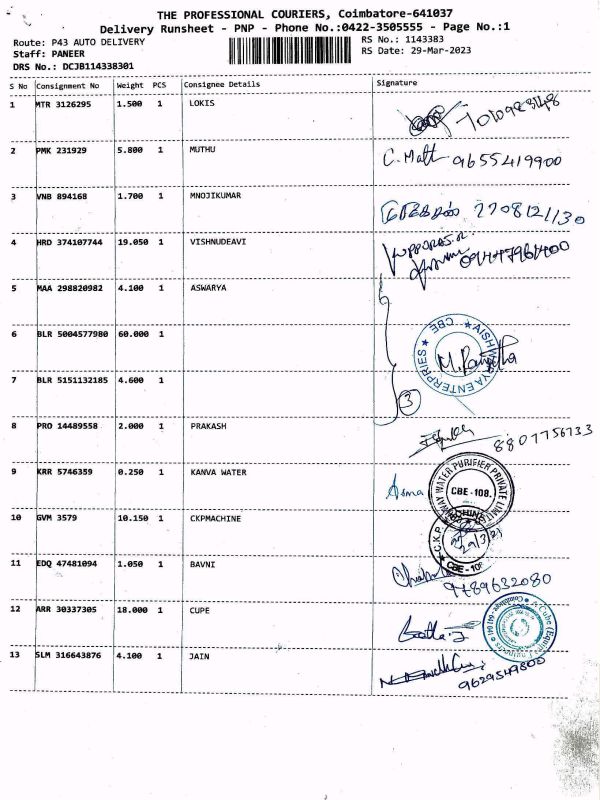 THE PROFESSIONAL COURIERS, Coimbatore-641037
Delivery Runsheet - PNP - Phone No.:0422-3505555 - Page No.:1
Route: P43 AUTO DELIVERY
RS No.: 1143383
Staff: PANEER
RS Date: 29-Mar-2023
DRS No.: DCJB114338301
S No Consignment No Weight PCS Consignee Details Signature
1 MTR 3126295 1.500 1 LOKIS
2 PMK 231929 5.800 1 MUTHU
C. Matt 9655419900
3 VNB 894168 1.700 1 MNOJIKUMAR
4 HRD 374107744 19.050 1 VISHNUDEAVI
5 MAA 298820982 4.100 1 ASWARYA
6 BLR 5004577980 60.000 1
AISHWARYA ENTERPRIES ★ CBE ★
7 BLR 5151132185 4.600 1
3
8 PRO 14489558 2.000 1 PRAKASH
8807756733
9 KRR 5746359 0.250 1 KANVA WATER
Asma
WATER PURIFIER PRIVATE LIMIT
CBE-108.
10 GVM 3579 10.150 1 CKPMACHINE
C.K.P.
29/3/23
11 EDQ 47481094 1.050 1 BAVNI
9789632080
12 ARR 30337305 18.000 1 CUPE
13 SLM 316643876 4.100 1 JAIN
9629549800